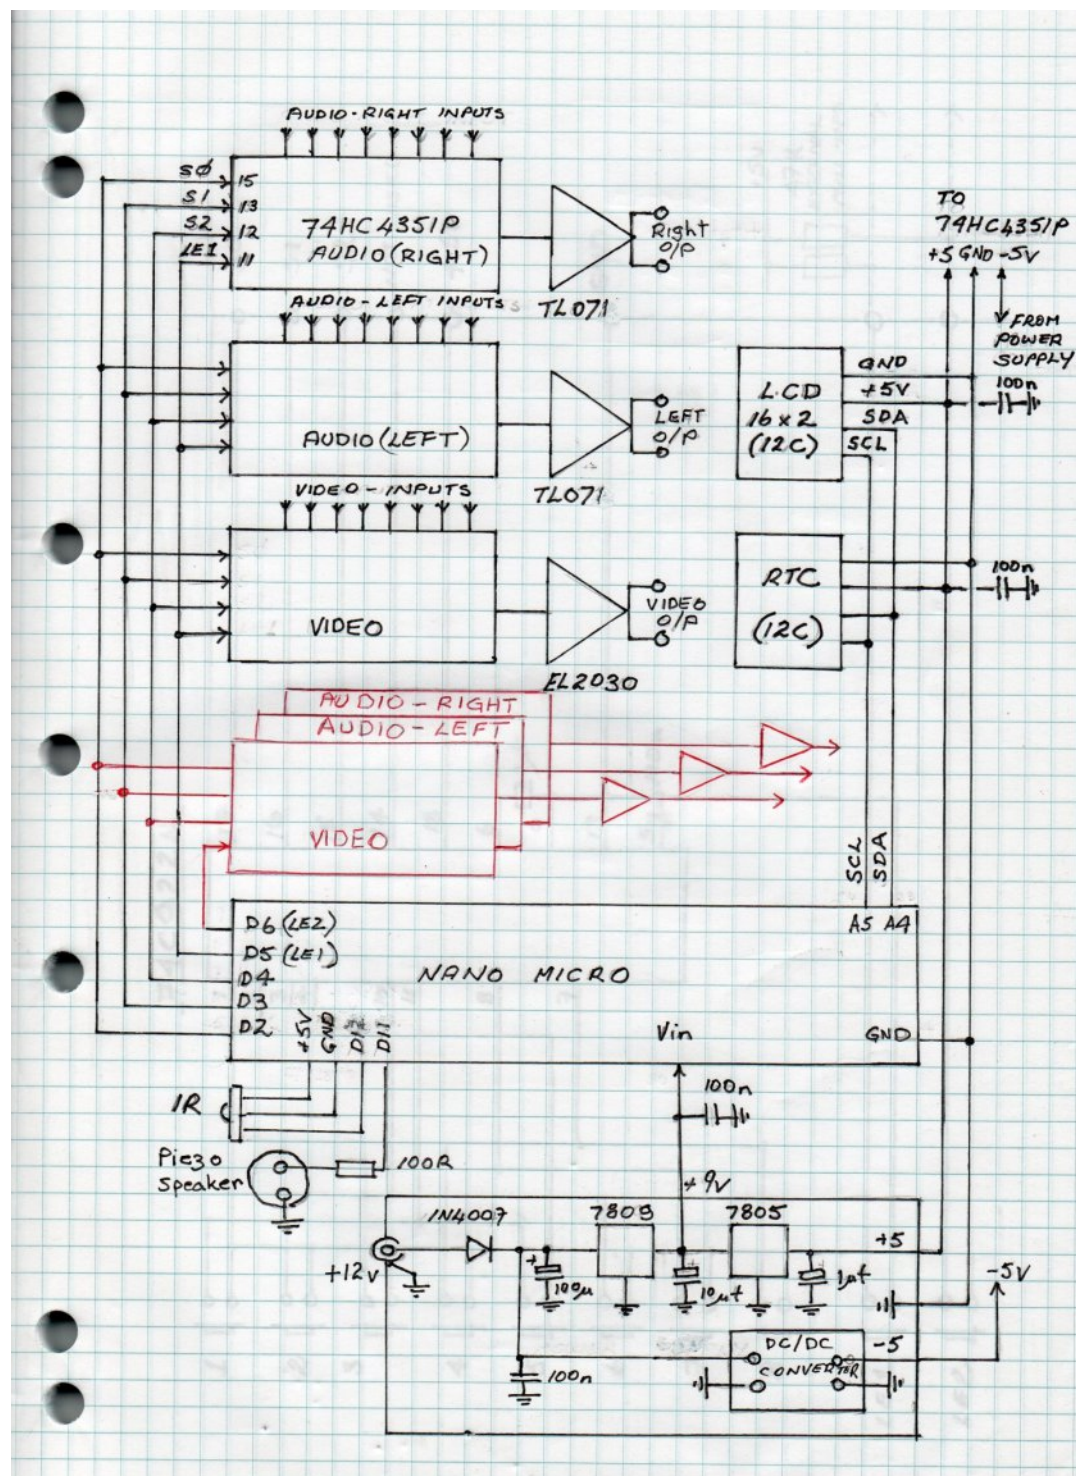 AUDIO-RIGHT INPUTS
SØ
15
S1
13
S2
12
LE1
11
74HC4351P
AUDIO(RIGHT)
TL071
Right
O/P
TO
74HC4351P
+5 GND -5V
FROM
POWER
SUPPLY
AUDIO-LEFT INPUTS
AUDIO(LEFT)
TL071
LEFT
O/P
LCD
16x2
(I2C)
GND
+5V
SDA
SCL
100n
VIDEO-INPUTS
VIDEO
EL2030
VIDEO
O/P
RTC
(I2C)
100n
AUDIO-RIGHT
AUDIO-LEFT
VIDEO
SCL
SDA
D6 (LE2)
D5 (LE1)
D4
D3
D2
NANO MICRO
A5 A4
+5V
GND
D12
D11
Vin
GND
IR
100n
Piezo
Speaker
100R
+9V
1N4007
7809
7805
+5
+12V
100µ
10µf
1µf
-5V
100n
DC/DC
CONVERTOR
-5